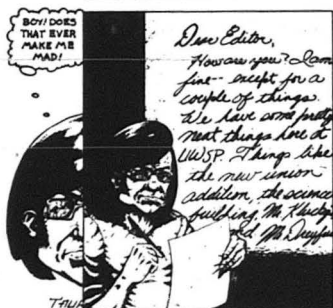 BOY! DOES
THAT EVER
MAKE ME
MAD!
Dear Editor,
How are you? I am
fine-- except for a
couple of things.
We have some pretty
neat things here at
UWSP. Things like
the new union
addition, the science
building, Mr.
Mr. Dreyfus